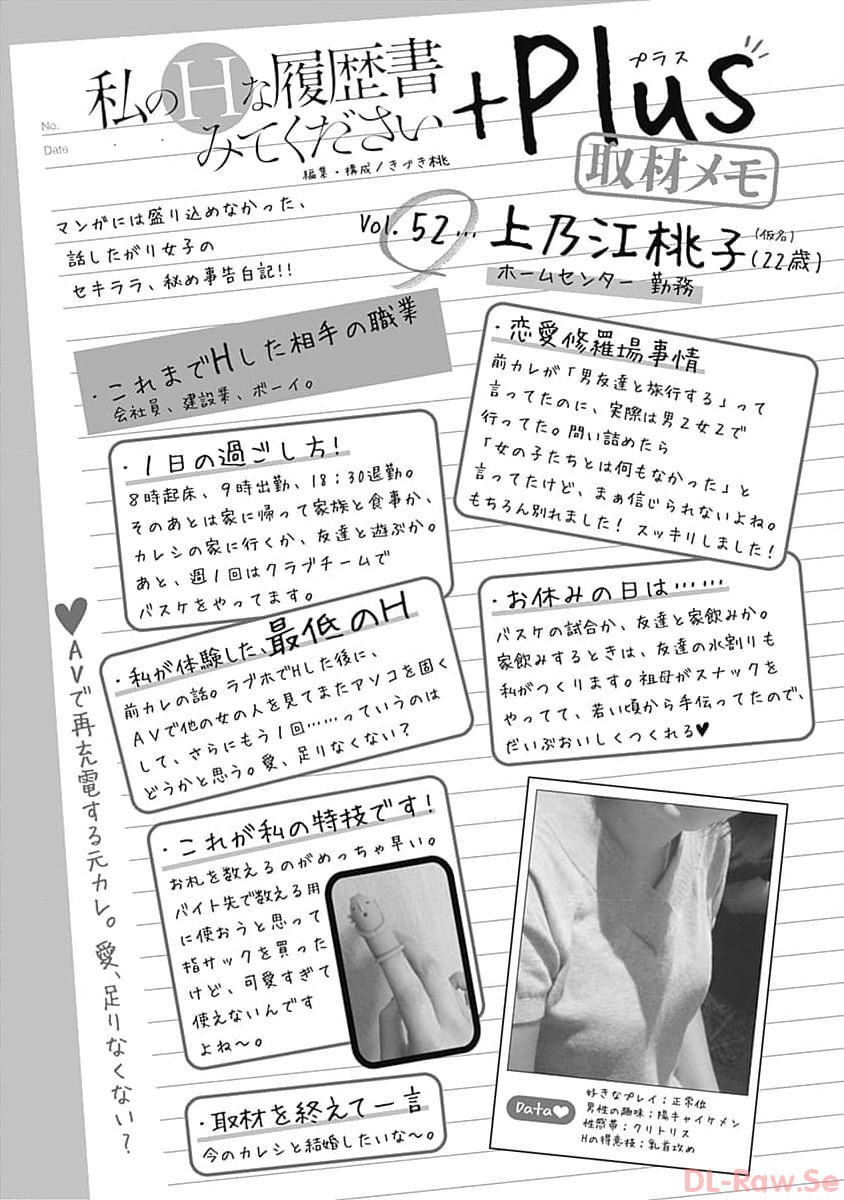 No.
Date
私のHな履歴書
みてください
+Plus
プラス
編集・構成/きづき桃
取材メモ
マンガには盛り込めなかった、
話したがり女子の
セキララ、秘め事告白記!!
Vol. 52… 上乃江桃子(仮名)(22歳)
ホームセンター 勤務
・これまでHした相手の職業
会社員、建設業、ボーイ。
・恋愛修羅場事情
前カレが「男友達と旅行する」って
言ってたのに、実際は男2女2で
行ってた。問い詰めたら
「女の子たちとは何もなかった」と
言ってたけど、まぁ信じられないよね。
もちろん別れました! スッキリしました!
・1日の過ごし方!
8時起床、9時出勤、18:30退勤。
そのあとは家に帰って家族と食事か、
カレシの家に行くか、友達と遊ぶか。
あと、週1回はクラブチームで
バスケをやってます。
・お休みの日は……
バスケの試合か、友達と家飲みか。
家飲みするときは、友達の水割りも
私がつくります。祖母がスナックを
やってて、若い頃から手伝ってたので、
だいぶおいしくつくれる♥
・私が体験した、最低のH
前カレの話。ラブホでHした後に、
AVで他の女の人を見てまたアソコを固く
して、さらにもう1回……っていうのは
どうかと思う。愛、足りなくない?
♥AVで再充電する元カレ。愛、足りなくない?
・これが私の特技です!
お札を数えるのがめっちゃ早い。
バイト先で数える用
に使おうと思って
指サックを買った
けど、可愛すぎて
使えないんです
よね〜。
・取材を終えて一言
今のカレシと結婚したいな〜。
Data♥
好きなプレイ;正常位
男性の趣味;陽キャイケメン
性感帯;クリトリス
Hの得意技;乳首攻め
DL-Raw.Se